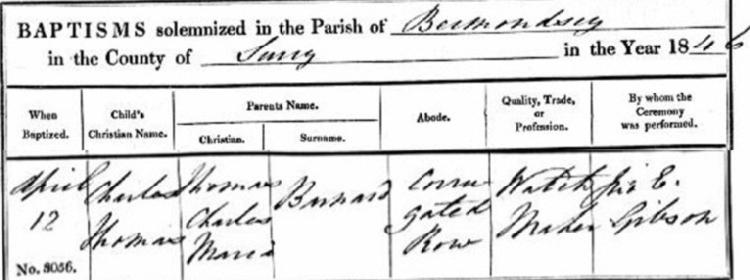 BAPTISMS solemnized in the Parish of Bermondsey
in the County of Surry in the Year 1846
When Baptized.
Child's Christian Name.
Parents Name.
Christian.
Surname.
Abode.
Quality, Trade, or Profession.
By whom the Ceremony was performed.
April
12
No. 8056.
Charles
Thomas
Thomas
Charles
Maria
Barnard
Corru
gated
Row
Watch
Maker
E.
Gibson